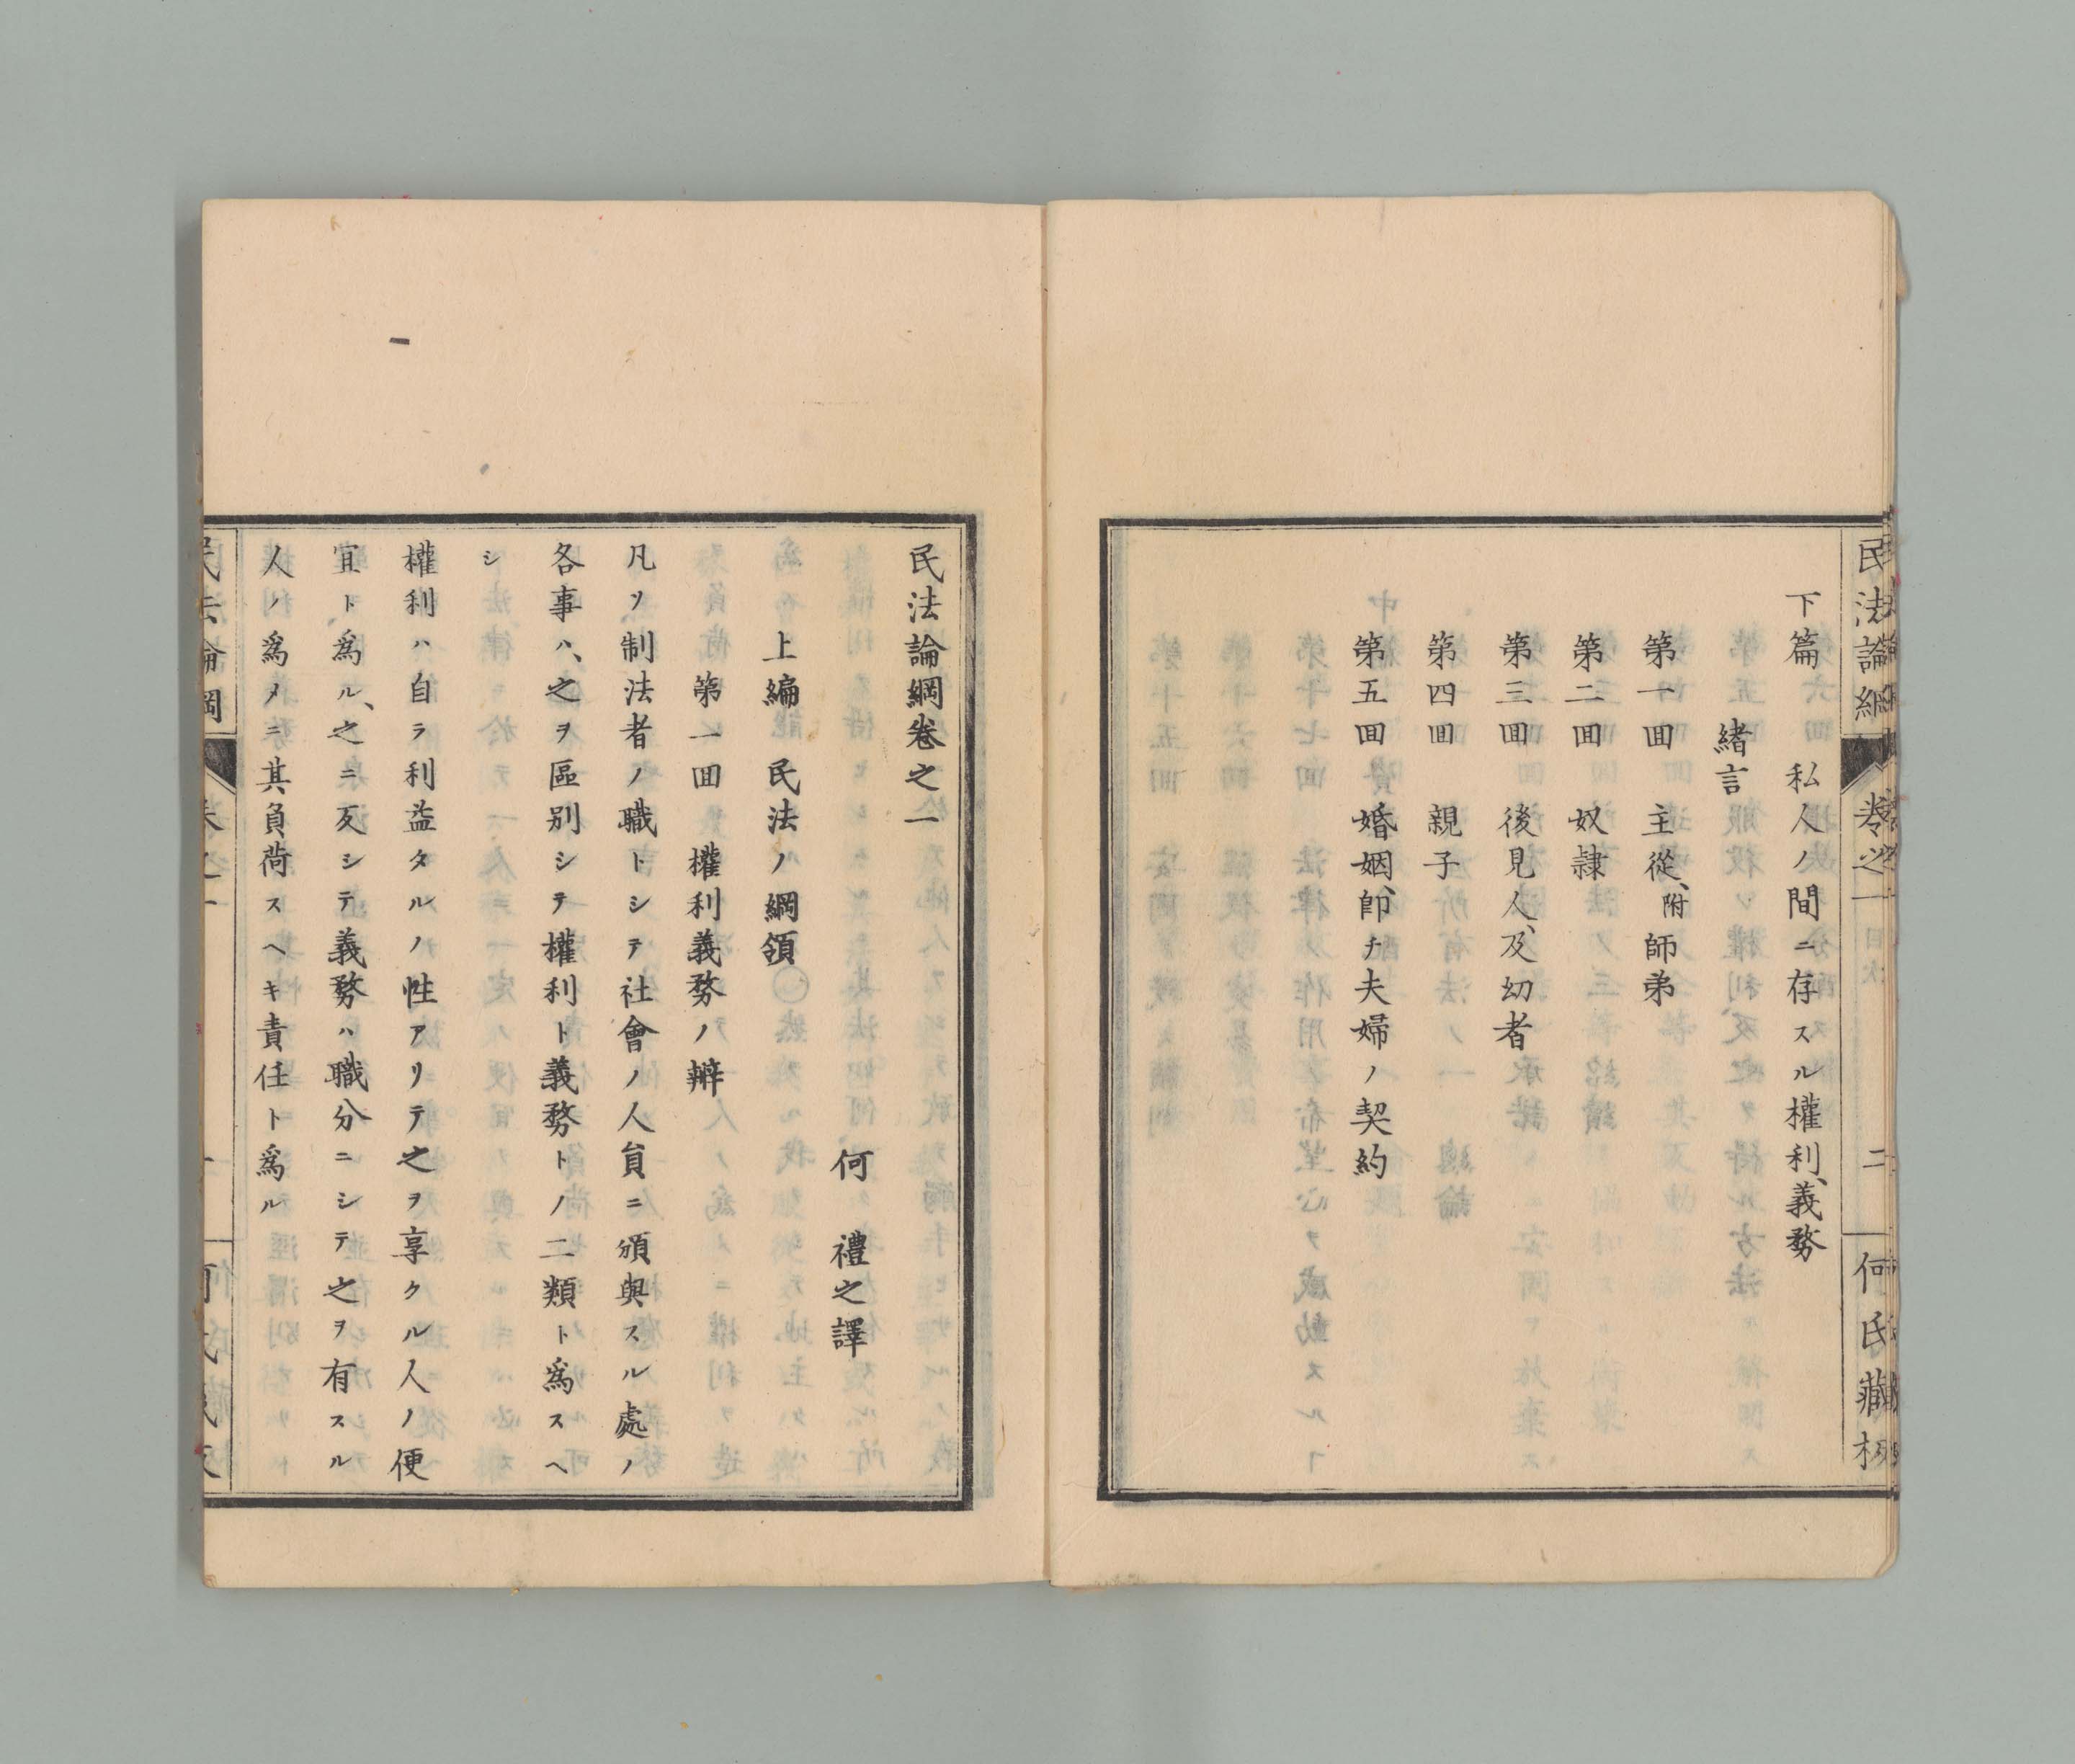 民法論綱 卷之一 目次 二 何氏藏板
下篇 私人ノ間ニ存スル權利、義務
緒言
第一回 主從、附師弟
第二回 奴隷
第三回 後見人、及幼者
第四回 親子
第五回 婚姻、卽チ夫婦ノ契約
民法論綱卷之一
何 禮之譯
上編 民法ノ綱領
第一回 權利義務ノ辨
凡ソ制法者ノ職トシテ社會ノ人員ニ頒與スル處ノ
各事ハ、之ヲ區別シテ權利ト義務トノ二類ト爲スヘ
シ
權利ハ自ラ利益タルノ性アリテ之ヲ享クル人ノ便
宜ト爲ル、之ニ反シテ義務ハ職分ニシテ之ヲ有スル
人ノ爲メニ其負荷スヘキ責任ト爲ル
民法論綱 卷之一 一 何氏藏